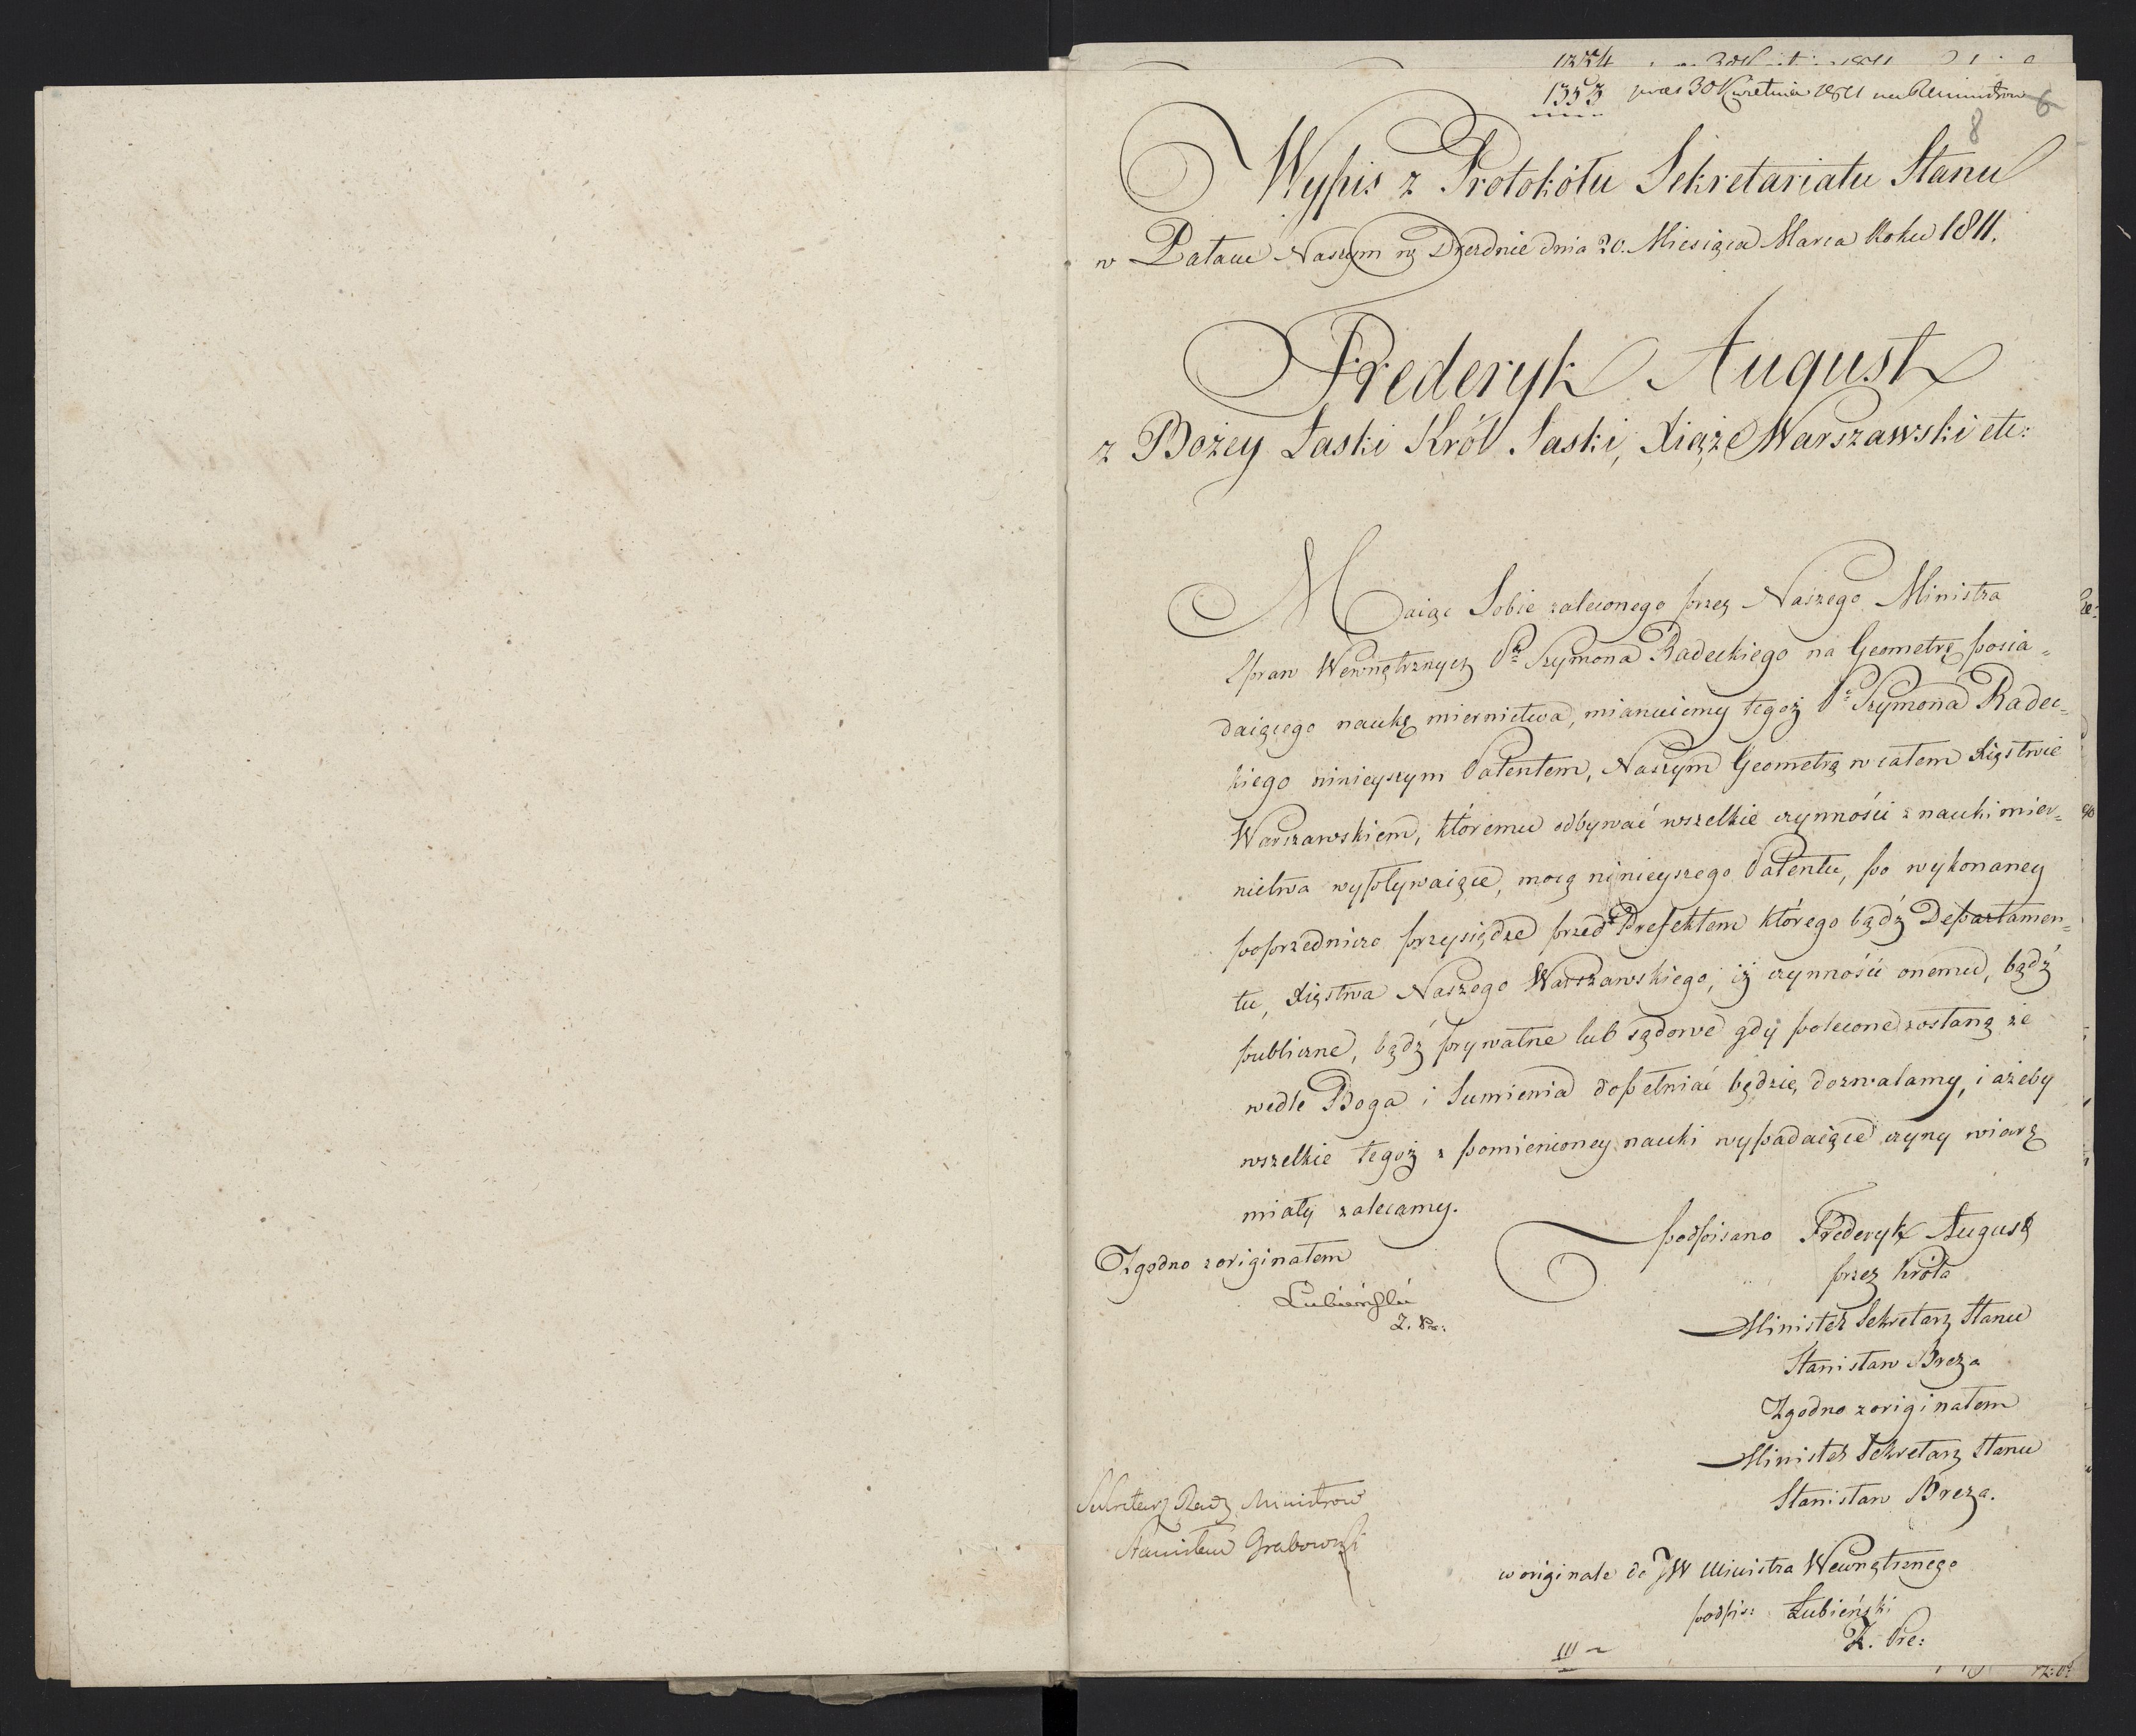 1353 praes 30 Kwietnia 1811 6
8
Wypis z Protokółu Sekretariatu Stanu
w Pałacu Naszym w Dreznie dnia 20. Miesiąca Marca Roku 1811.
Frederyk August
z Bożey Łaski Król Saski, Xiąże Warszawski etc:
Maiąc Sobie zaleconego przez Naszego Ministra
Spraw Wewnętrznych Pa Szymona Radeckiego na Geometrę posia=
daiącego naukę miernictwa, mianuiemy tegoż Pa Szymona Radec=
kiego ninieyszym Patentem, Naszym Geometrą w całem Xięstwie
Warszawskiem, któremu odbywać wszelkie czynności z nauki mier=
nictwa wypływaiące, mocą ninieyszego Patentu, po wykonaney
poprzedniczo przysiędze przed Prefektem którego bądź Departamen=
tu, Xięstwa Naszego Warszawskiego, iż czynności onemu, bądź
publiczne, bądź prywatne lub sądowe gdy polecone zostaną że
wedle Boga i Sumienia dopełniać będzie, dozwalamy, i ażeby
wszelkie tegoż z pomienioney nauki wypadaiące czyny wiarę
miały zalecamy.
podpisano Frederyk August
przez Króla
Minister Sekretarz Stanu
Stanisław Breza
Zgodno z originałem
Minister Sekretarz Stanu
Stanisław Breza.
Zgodno z originałem
Lubieński
Z. Pr:
Sekretarz Rady Ministrow
Stanisław Grabowski
w originale do JW Ministra Wewnętrznego
podpis: Łubieński
Z. Pre: